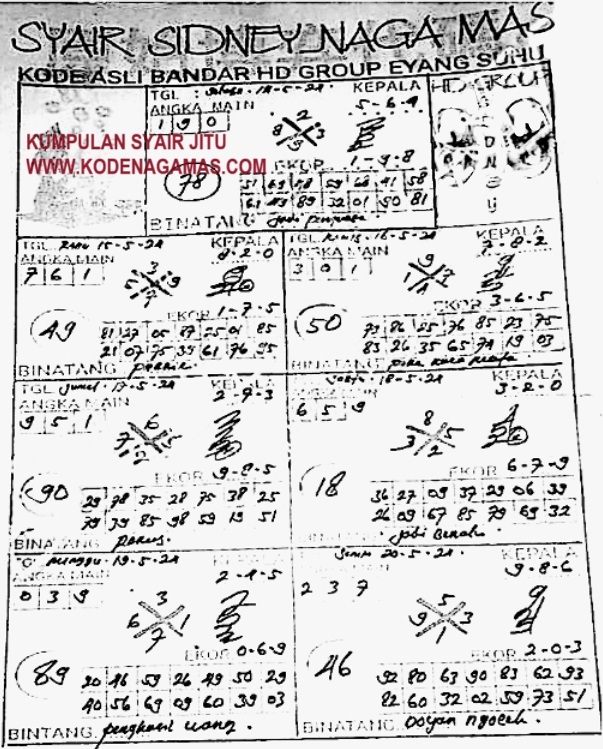 SYAIR SIDNEY NAGA MAS
KODE ASLI BANDAR HD GROUP EYANG SUHU
KUMPULAN SYAIR JITU
WWW.KODENAGAMAS.COM
TGL : 14-5-24 KEPALA
ANGKA MAIN 5-6-9
1 9 0
EKOR 1-9-8
78
51 69 18 59 68 41 58
61 49 89 32 01 50 81
BINATANG
HD GROUP
SIDNEY
TGL. Rabu 15-5-24 KEPALA
ANGKA MAIN 8-2-0
7 6 1
EKOR 1-7-5
49
81 27 05 87 25 01 85
21 07 75 39 61 76 95
BINATANG
TGL. Kamis. 16-5-24 KEPALA
ANGKA MAIN 7-8-2
3 0 1
EKOR 3-6-5
50
73 86 25 76 85 23 75
83 26 35 65 74 19 03
BINATANG
TGL Jumat. 17-5-24 KEPALA
ANGKA MAIN 2-9-3
9 5 1
EKOR 9-8-5
90
29 78 35 28 75 38 25
79 39 85 98 59 19 51
BINATANG
18-5-24 KEPALA
3-2-0
6 5 9
EKOR 6-7-9
18
36 27 09 37 29 06 39
26 09 67 85 79 69 32
BINATANG
Minggu. 19-5-24
ANGKA MAIN 2-4-5
0 3 9
EKOR 0-6-9
89
20 46 59 26 49 50 29
40 56 69 09 60 39 03
BINTANG penghasil uang.
Senin 20-5-24 KEPALA
ANGKA MAIN 9-8-6
2 3 7
EKOR 2-0-3
46
92 80 63 90 83 62 93
82 60 32 02 59 73 51
BINATANG Doyan ngoceh.